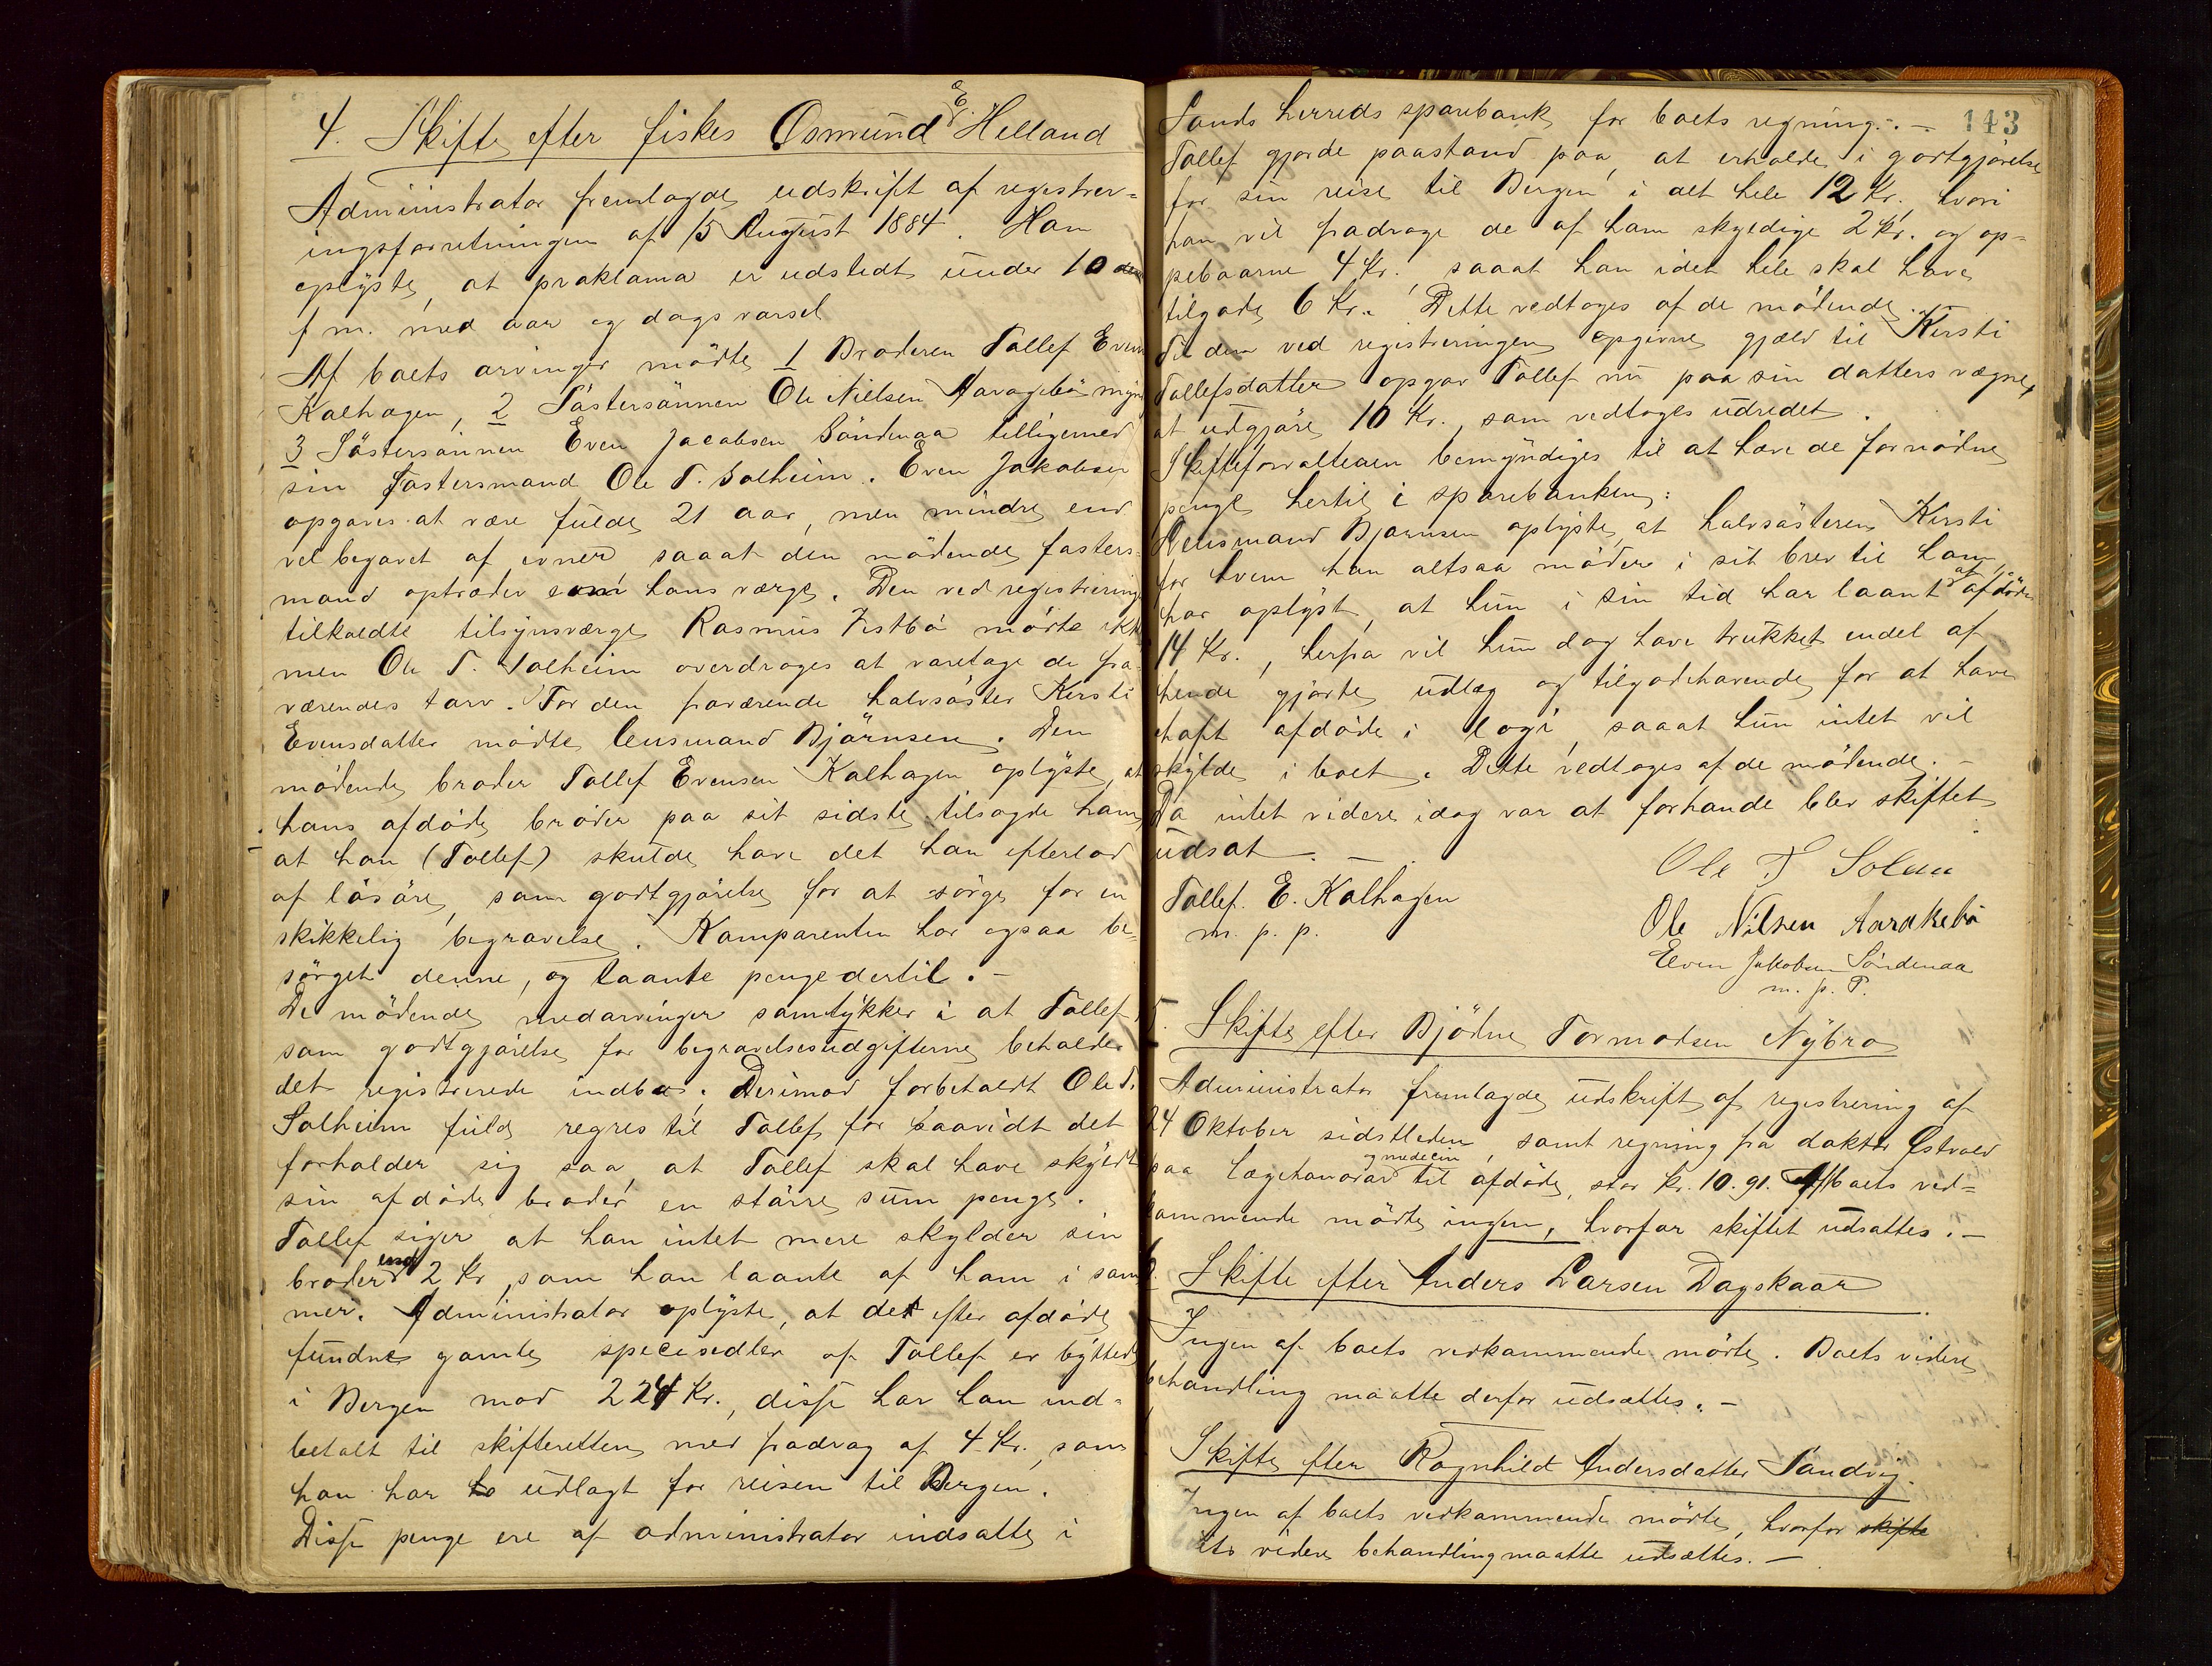 4. Skifte efter fisker Osmund E. Helland
Administrator fremlagde udskrift af registrer-
ingsforretningen af 15 August 1884. Han
oplyste, at proklama er udstedt under 10 den
f m. med aar og dags varsel
Af boets arvinger mödte 1 Broderen Tollef Evens
Kalhagen, 2 Söstersönnen Ole Nielsen
3 Söstersönnen Even Jacobsen Söndenaa tilligemed
sin Fostersmand Ole T. Solheim. Even Jakobsen
opgaves at være fulde 21 aar, men mindre end
vel begavet af evner saaat den mödende fosters-
mand optræder som hans værge. Den ved registrering
tilkaldte tilsynsværge Rasmus Östbö mödte ikke
men Ole T. Solheim overdroges at varetage de fra-
værendes tarv. For den fraværende halvsöster Kirsti
Evensdatter mödte lensmand Björnsen. Den
mödende broder Tollef Evensen Kalhagen oplyste, at
hans afdöde broder paa sit sidste tilsagde ham,
at han (Tollef) skulde have det han efterlod
af lösöre, som godtgjörelse for at sörge for en
skikkelig begravelse. Komparenten har ogsaa be-
sörget denne, og laante penge dertil. -
De mödende medarvinger samtykker i at Tollef,
som godtgjörelse for begravelsesudgifterne beholder
det registrerede indbo. Derimod forbeholdt Ole T.
Solheim fuld regres til Tollef for saavidt det
forholder sig saa, at Tollef skal have skyldt
sin afdöde broder en större sum penge.
Tollef siger at han intet mere skylder sin
broder end 2 Kr, som han laante af ham i som
mer. Administrator oplyste, at det efter afdöde
fundne gamle speciesedler af Tollef er byttede
i Bergen mod 224 Kr., disse har han ind-
betalt til skifteretten med fradrag af 4 Kr., som
han har udlagt for reisen til Bergen.
Disse penge ere af administrator indsatte i
143
Sands herreds sparebank for boets regning. -
Tollef gjorde paastand paa, at erholde i godtgjörelse
for sin reise til Bergen i alt hele 12 Kr. hvori
han vil fradrage de af ham skyldige 2 Kr. og op-
pebaarne 4 Kr., saaat han i det hele skal have
tilgode 6 Kr. Dette vedtoges af de mödende.
Til den ved registreringen opgivne gjæld til Kirsti
Tollefsdatter opgav Tollef nu paa sin datters vegne,
at udgjöre 10 Kr., som vedtoges udredet.
Skifteforvalteren bemyndiges til at hæve de fornödne
penge hertil i sparebanken:
Lensmand Bjørnsen oplyste, at halvsösteren Kirsti
for hvem han altsaa möder i sit brev til ham,
har oplyst, at hun i sin tid har laant af afdöde
14 Kr., herfra vil hun dog have trukket endel af
hende gjorte udlæg og tilgodehavende for at have
haft afdöde i logi, saaat hun intet vil
skylde i boet. Dette vedtoges af de mödende. -
Da intet videre idag var at forhande blev skiftet
udsat. -
Ole T
Tollef. E. Kalhagen
m. p. p.
Ole Nilsen Aarakebö
Even Jakobsen Söndenaa
m. p. P.
5. Skifte efter Björne Tormodsen Nybro
Administrator fremlagde udskrift af registrering af
24 Oktober sidstleden, samt regning fra doktor Östvold
paa lægehonorar og medicin til afdöde, stor Kr. 10.91. Af boets ved-
kommende mödte ingen, hvorfor skiftet udsattes. -
6. Skifte efter Anders Larsen Dagskaar
Ingen af boets vedkommende mödte. Boets videre
behandling maatte derfor udsættes. -
Skifte efter Ragnhild Andersdatter Sandvig.
Ingen af boets vedkommende mödte, hvorfor skifte
videre behandling maatte udsættes. -